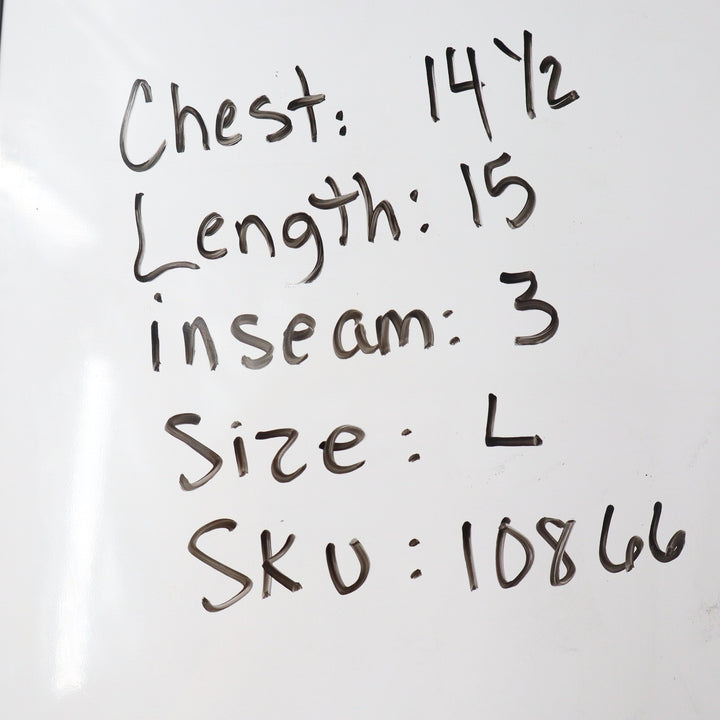 Chest: 14 1/2
Length: 15
inseam: 3
Size: L
SKU: 10866